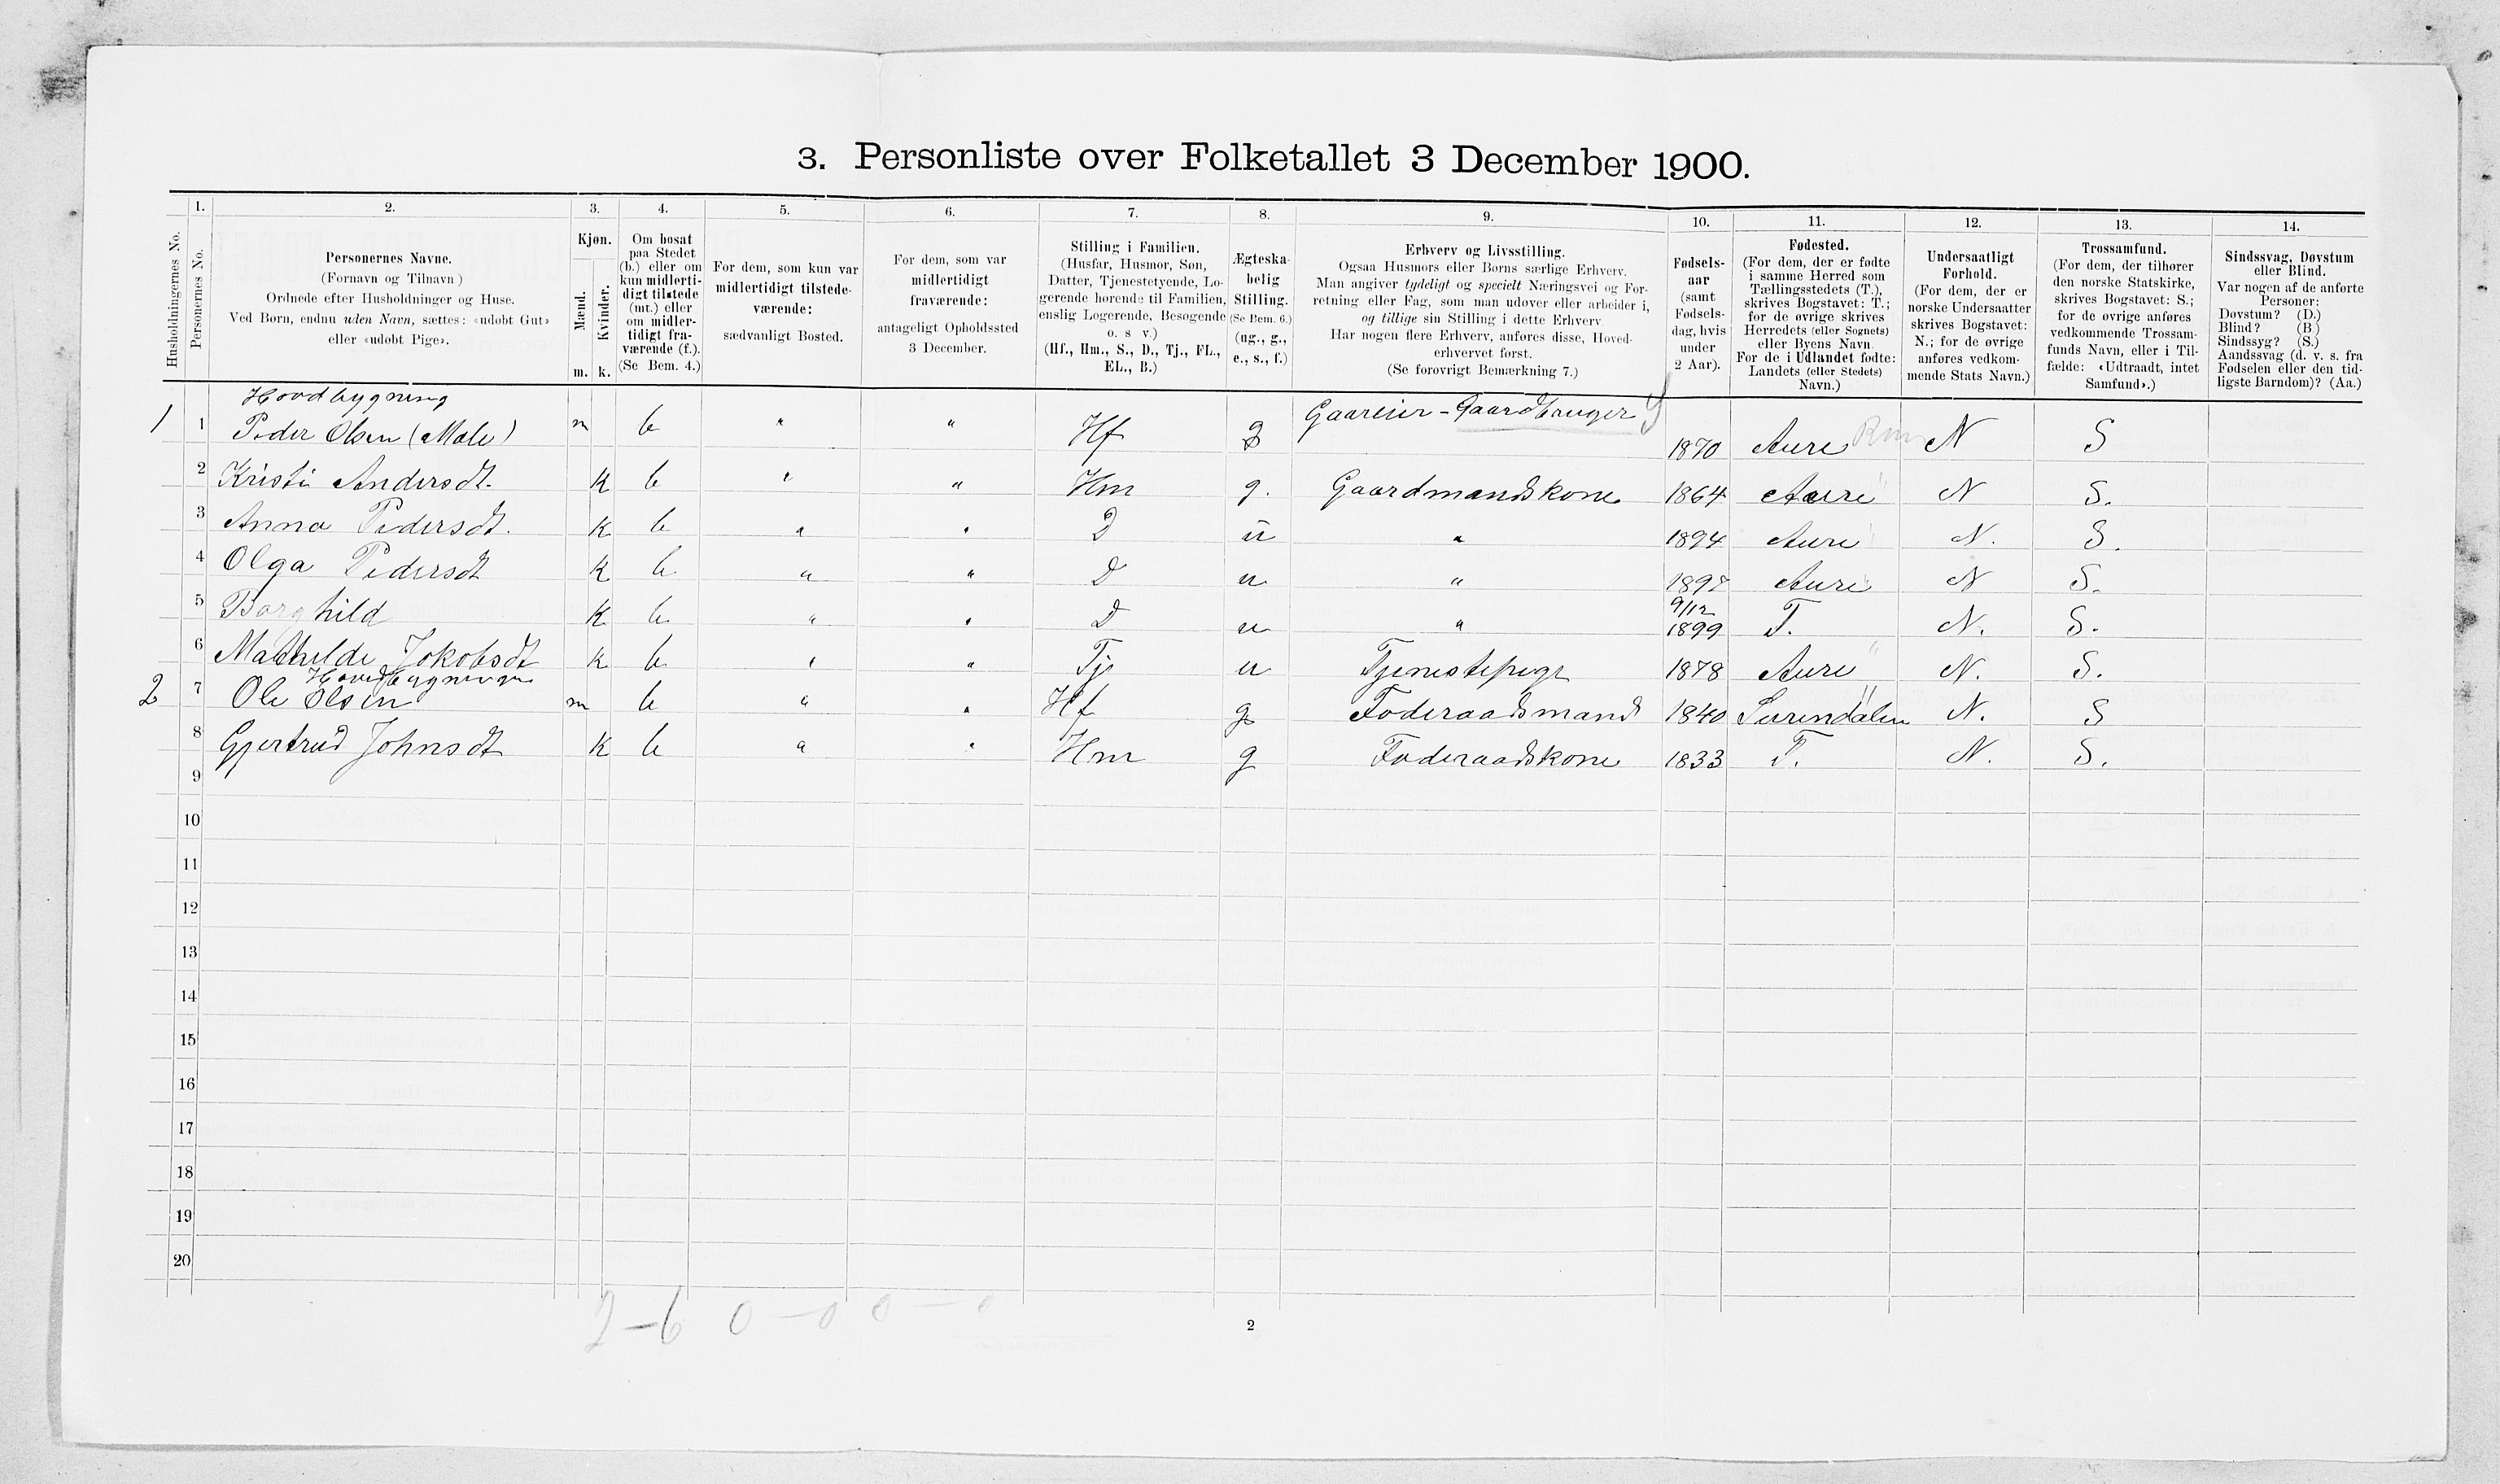 3. Personliste over Folketallet 3 December 1900.
Husholdningernes No.
1.
Personernes No.
2.
Personernes Navne.
(Fornavn og Tilnavn)
Ordnede efter Husholdninger og Huse.
Ved Børn, endnu uden Navn, sættes: «udøbt Gut»
eller «udøbt Pige».
3.
Kjøn.
Mænd.
Kvinder.
m. k.
4.
Om bosat
paa Stedet
(b.) eller om
kun midlerti-
digt tilstede
(mt.) eller
om midler-
tidigt fra-
værende (f.).
(Se Bem. 4.)
5.
For dem, som kun var
midlertidigt tilstede-
værende:
sædvanligt Bosted.
6.
For dem, som var
midlertidigt
fraværende:
antageligt Opholdssted
3 December.
7.
Stilling i Familien.
(Husfar, Husmor, Søn,
Datter, Tjenestetyende, Lo-
gerende hørende til Familien,
enslig Logerende, Besøgende
o. s v.)
(Hf., Hm., S., D., Tj., FL.,
EL., B.)
8.
Ægteska-
belig
Stilling.
(Se Bem. 6.)
(ug., g.,
e., s., f.)
9.
Erhverv og Livsstilling.
Ogsaa Husmors eller Børns særlige Erhverv.
Man angiver tydeligt og specielt Næringsvei og For-
retning eller Fag, som man udøver eller arbeider i,
og tillige sin Stilling i dette Erhverv
Har nogen flere Erhverv, anføres disse, Hoved-
erhvervet først.
(Se forøvrigt Bemærkning 7.)
10.
Fødsels-
aar
(samt
Fødsels-
dag, hvis
under
2 Aar).
11.
Fødested.
(For dem, der er fødte
i samme Herred som
Tællingsstedets (T.),
skrives Bogstavet: T.;
for de øvrige skrives
Herredets (eller Sognets)
eller Byens Navn.
For de i Udlandet fødte:
Landets (eller Stedets)
Navn.)
12.
Undersaatligt
Forhold.
(For dem, der er
norske Undersaatter
skrives Bogstavet:
N.; for de øvrige
anføres vedkom-
mende Stats Navn.)
13.
Trossamfund.
(For dem, der tilhører
den norske Statskirke,
skrives Bogstavet: S.;
for de øvrige anføres
vedkommende Trossam-
funds Navn, eller i Til-
fælde: «Udtraadt, intet
Samfund».)
14.
Sindssvag, Døvstum
eller Blind.
Var nogen af de anførte
Personer:
Døvstum? (D.)
Blind? (B.)
Sindssyg? (S.)
Aandssvag (d. v. s. fra
Fødselen eller den tid-
ligste Barndom)? (Aa.)
Hovdbygning
1 1 Peder Olsen (Male) m b " " Hf g Gaareier - Gaardbruger 1870 Aure N S
2 Kristi Andersdt. K b " " Hm g. Gaardmandskone 1864 Aure N S.
3 Anna Pedersdt. K b " " D u " 1894 Aure N. S.
4 Olga Pedersdt K b " " D u " 1897 Aure N S.
5 Borghild K b " " D u " 9/12 1899 T. N. S.
6 Mathilde Jokobsdt K b " " Tj u Tjenestepige 1878 Aure N. S.
Hovedbygningen
2 7 Ole Olsen m b " " Hf g Foderaadsmand 1840 Surendalen N. S
8 Gjertrud Johnsdt K b " " Hm g Foderaadskone 1833 T. N. S.
9
10
11
12
13
14
15
16
17
18
19
20
2-6 0-0 0-0
2